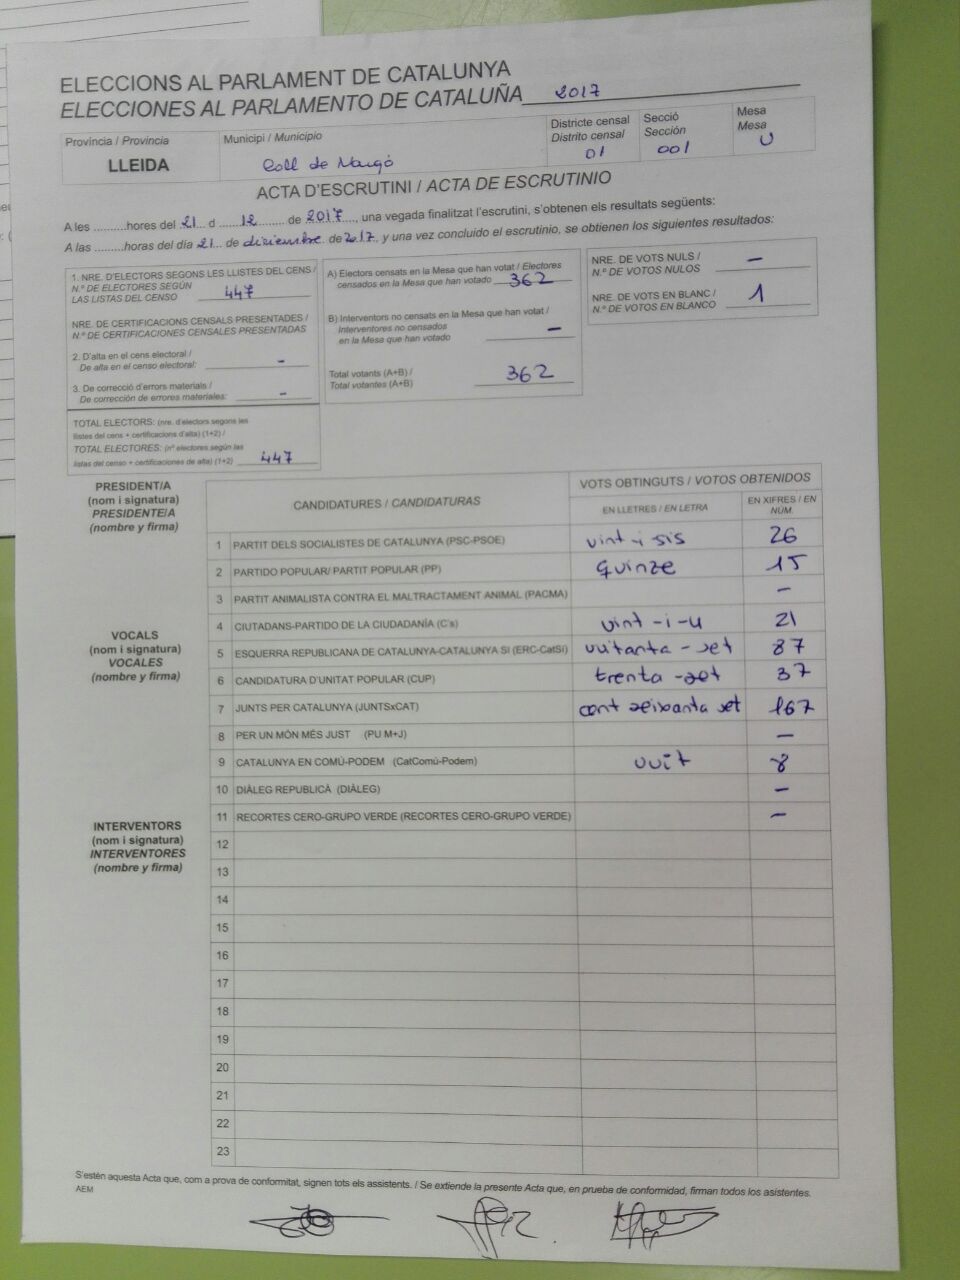 ELECCIONS AL PARLAMENT DE CATALUNYA
ELECCIONES AL PARLAMENTO DE CATALUÑA 2017
Província / Provincia
LLEIDA
Municipi / Municipio
Coll de Nargó
Districte censal
Distrito censal
01
Secció
Sección
001
Mesa
Mesa
U
ACTA D'ESCRUTINI / ACTA DE ESCRUTINIO
A les ..........hores del 21 d ......12........ de 2017...., una vegada finalitzat l'escrutini, s'obtenen els resultats següents:
A las .........horas del día 21... de diciembre. de 2017. y una vez concluido el escrutinio, se obtienen los siguientes resultados:
1. NRE. D'ELECTORS SEGONS LES LLISTES DEL CENS /
N.º DE ELECTORES SEGÚN
LAS LISTAS DEL CENSO 447
NRE. DE CERTIFICACIONS CENSALS PRESENTADES /
N.º DE CERTIFICACIONES CENSALES PRESENTADAS
2. D'alta en el cens electoral /
De alta en el censo electoral: -
3. De correcció d'errors materials /
De corrección de errores materiales: -
TOTAL ELECTORS: (nre. d'electors segons les
llistes del cens + certificacions d'alta) (1+2) /
TOTAL ELECTORES: (nº electores según las
listas del censo + certificaciones de alta) (1+2) 447
A) Electors censats en la Mesa que han votat / Electores
censados en la Mesa que han votado 362
B) Interventors no censats en la Mesa que han votat /
Interventores no censados
en la Mesa que han votado -
Total votants (A+B) /
Total votantes (A+B) 362
NRE. DE VOTS NULS /
N.º DE VOTOS NULOS -
NRE. DE VOTS EN BLANC /
N.º DE VOTOS EN BLANCO 1
PRESIDENT/A
(nom i signatura)
PRESIDENTE/A
(nombre y firma)
VOCALS
(nom i signatura)
VOCALES
(nombre y firma)
INTERVENTORS
(nom i signatura)
INTERVENTORES
(nombre y firma)
CANDIDATURES / CANDIDATURAS
VOTS OBTINGUTS / VOTOS OBTENIDOS
EN LLETRES / EN LETRA
EN XIFRES / EN
NÚM.
1 PARTIT DELS SOCIALISTES DE CATALUNYA (PSC-PSOE) vint-i sis 26
2 PARTIDO POPULAR/ PARTIT POPULAR (PP) quinze 15
3 PARTIT ANIMALISTA CONTRA EL MALTRACTAMENT ANIMAL (PACMA) -
4 CIUTADANS-PARTIDO DE LA CIUDADANÍA (C's) vint-i-u 21
5 ESQUERRA REPUBLICANA DE CATALUNYA-CATALUNYA SÍ (ERC-CatSí) vuitanta-set 87
6 CANDIDATURA D'UNITAT POPULAR (CUP) trenta-set 37
7 JUNTS PER CATALUNYA (JUNTSxCAT) cent seixanta set 167
8 PER UN MÓN MÉS JUST (PU M+J) -
9 CATALUNYA EN COMÚ-PODEM (CatComú-Podem) vuit 8
10 DIÀLEG REPUBLICÀ (DIÀLEG) -
11 RECORTES CERO-GRUPO VERDE (RECORTES CERO-GRUPO VERDE) -
12
13
14
15
16
17
18
19
20
21
22
23
S'estén aquesta Acta que, com a prova de conformitat, signen tots els assistents. / Se extiende la presente Acta que, en prueba de conformidad, firman todos los asistentes.
AEM